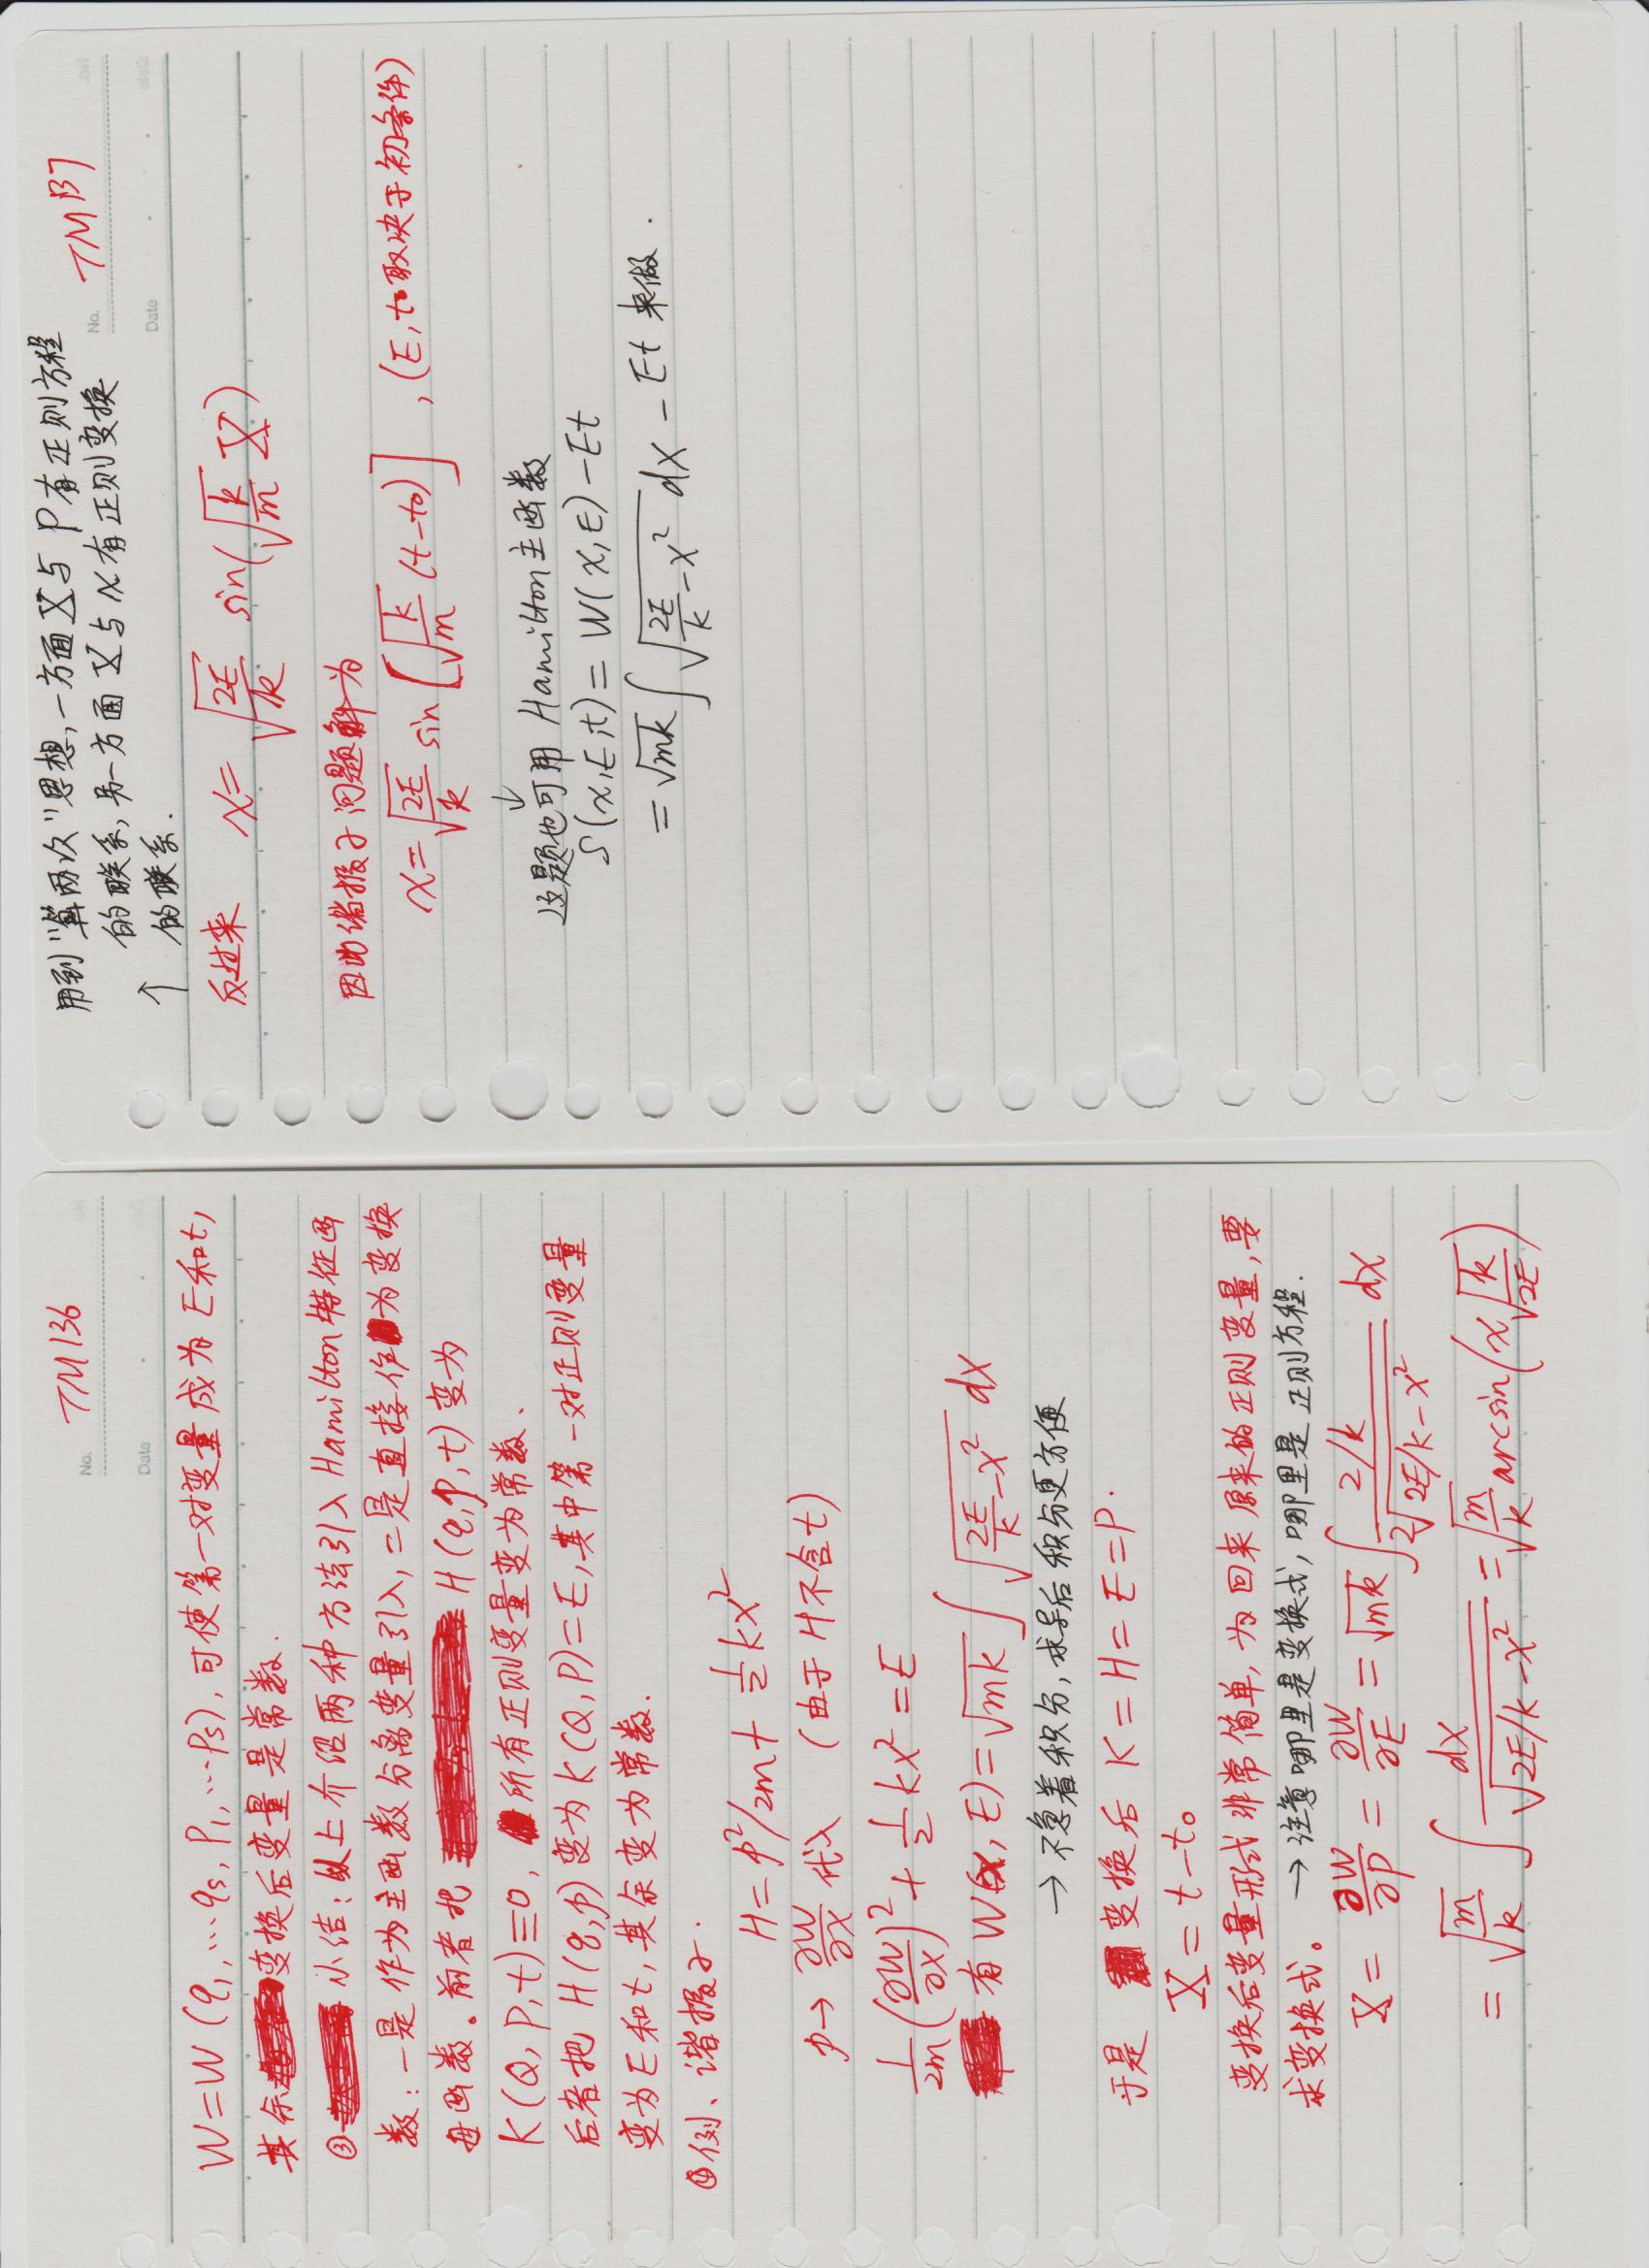 No. TM136
Date
W=W(q₁,…qₛ, P₁,…Pₛ), 可使第一对变量成为E和t,
其余变换后变量是常数.
③ 小结: 以上介绍两种方法引入Hamilton特征函
数: 一是作为主函数分离变量引入, 二是直接作为变换
母函数。前者把 H(q,p,t) 变为
K(Q,P,t)≡0, 所有正则变量变为常数.
后者把 H(q,p) 变为 K(Q,P)=E, 其中第一对正则变量
变为E和t, 其余变为常数.
④例、谐振子.
H=p²/2m+ 1/2 kx²
p→ ∂W/∂x 代入 (由于H不含t)
1/2m (∂W/∂x)² + 1/2 kx² = E
有 W(x, E)=√(mk) ∫ √(2E/k - x²) dx
→ 不急着积分, 求导后积分更方便
于是 变换后 K=H=E=P.
X = t-t₀
变换后变量形式非常简单, 为回来原来的正则变量, 要
求变换式。 → 注意哪里是变换式, 哪里是正则方程.
X = ∂W/∂P = ∂W/∂E = √(mk) ∫ (2/k)/(2√(2E/k-x²)) dx
= √(m/k) ∫ dx/√(2E/k-x²) = √(m/k) arcsin(x√(k/2E))
用到"算两次"思想, 一方面X与P有正则方程
No. TM137
的联系, 另一方面X与x有正则变换
Date
↑ 的联系.
反过来 x= √(2E/k) sin(√(k/m) X)
因此谐振子问题解为
x=√(2E/k) sin[√(k/m) (t-t₀)] , (E, t₀取决于初条件)
↓
这题也可用 Hamilton主函数
S(x,E,t)= W(x,E)-Et
= √(mk) ∫ √(2E/k - x²) dx - Et 来做.